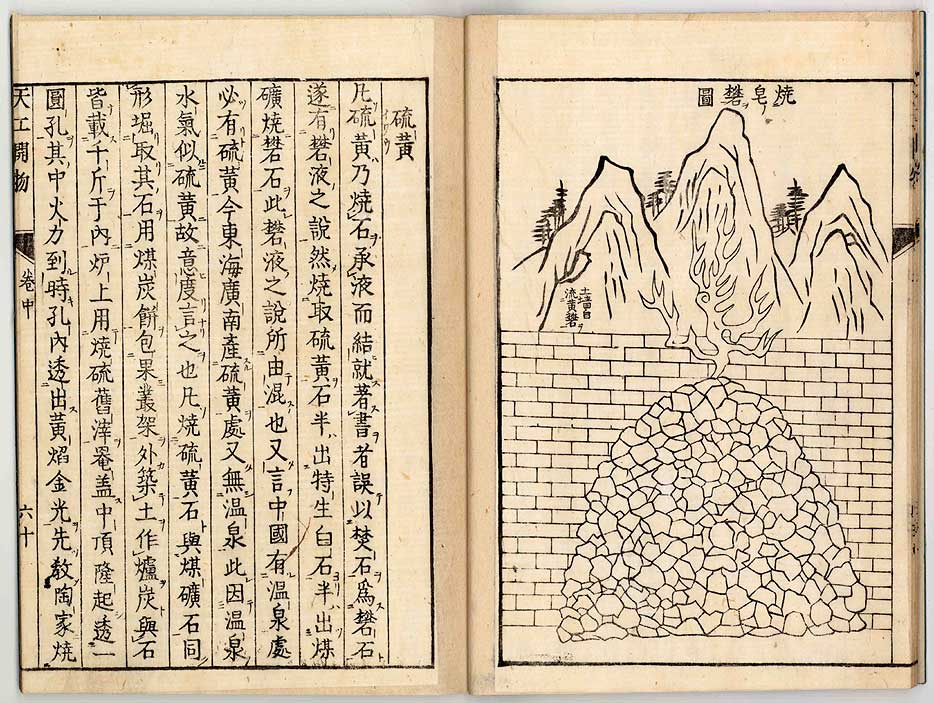 焼皂礬圖
流黄礬
硫黄
凡硫黄乃焼石承液而結就著書者誤以焚石爲礬石
遂有礬液之說然焼取硫黄石半出特生白石半出煤
礦焼礬石此礬液之說所由混也又言中國有温泉處
必有硫黄今東海廣南產硫黄處又無温泉此因温泉
水氣似硫黄故意度言之也凡焼硫黄石與煤礦石同
形掘取其石用煤炭餅包果叢架外築土作爐炭與石
皆載千斤于內炉上用焼硫舊滓罨盖中頂隆起透一
圓孔其中火力到時孔內透出黄焰金光先教陶家焼
天工開物 卷中 六十